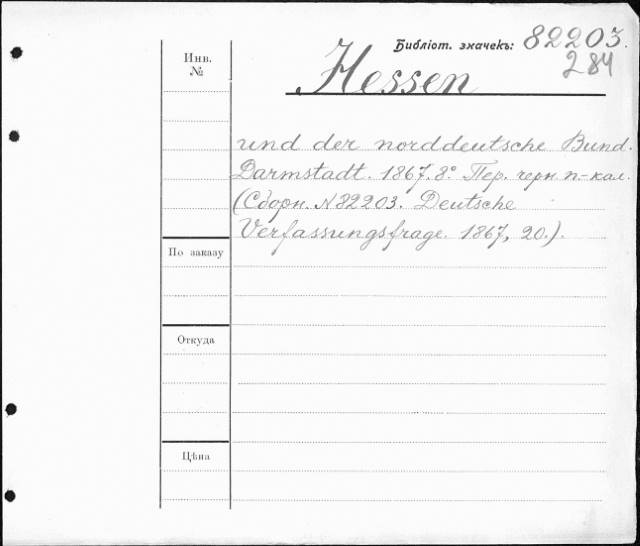 Библіот. значекъ: 82203.
284
Инв.
№
Hessen
und der norddeutsche Bund.
Darmstadt. 1867. 8º. Пер. черн. п.-кал.
(Сборн. № 82203. Deutsche
Verfassungsfrage. 1867, 20.).
По заказу
Откуда
Цѣна